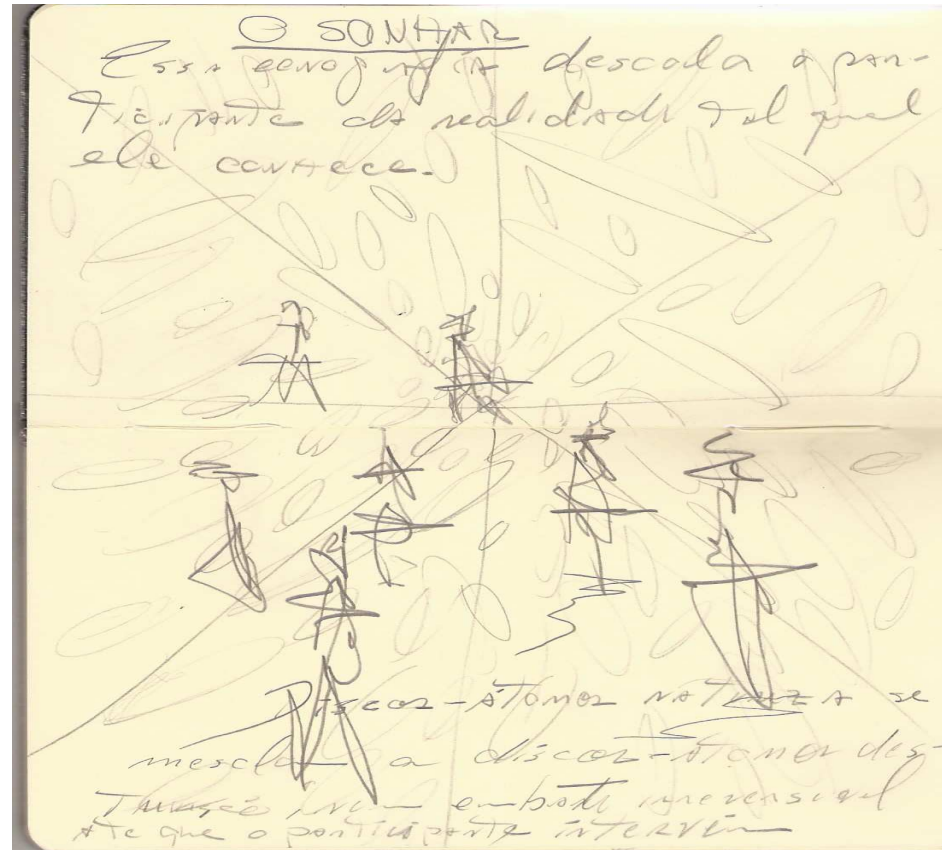 O SONHAR
Essa cenografia descola o par-
ticipante da realidade tal qual
ele conhece.
Discos-átomos natureza se
mesclam a discos-átomos des-
truição num embate irreversível
até que o participante intervém